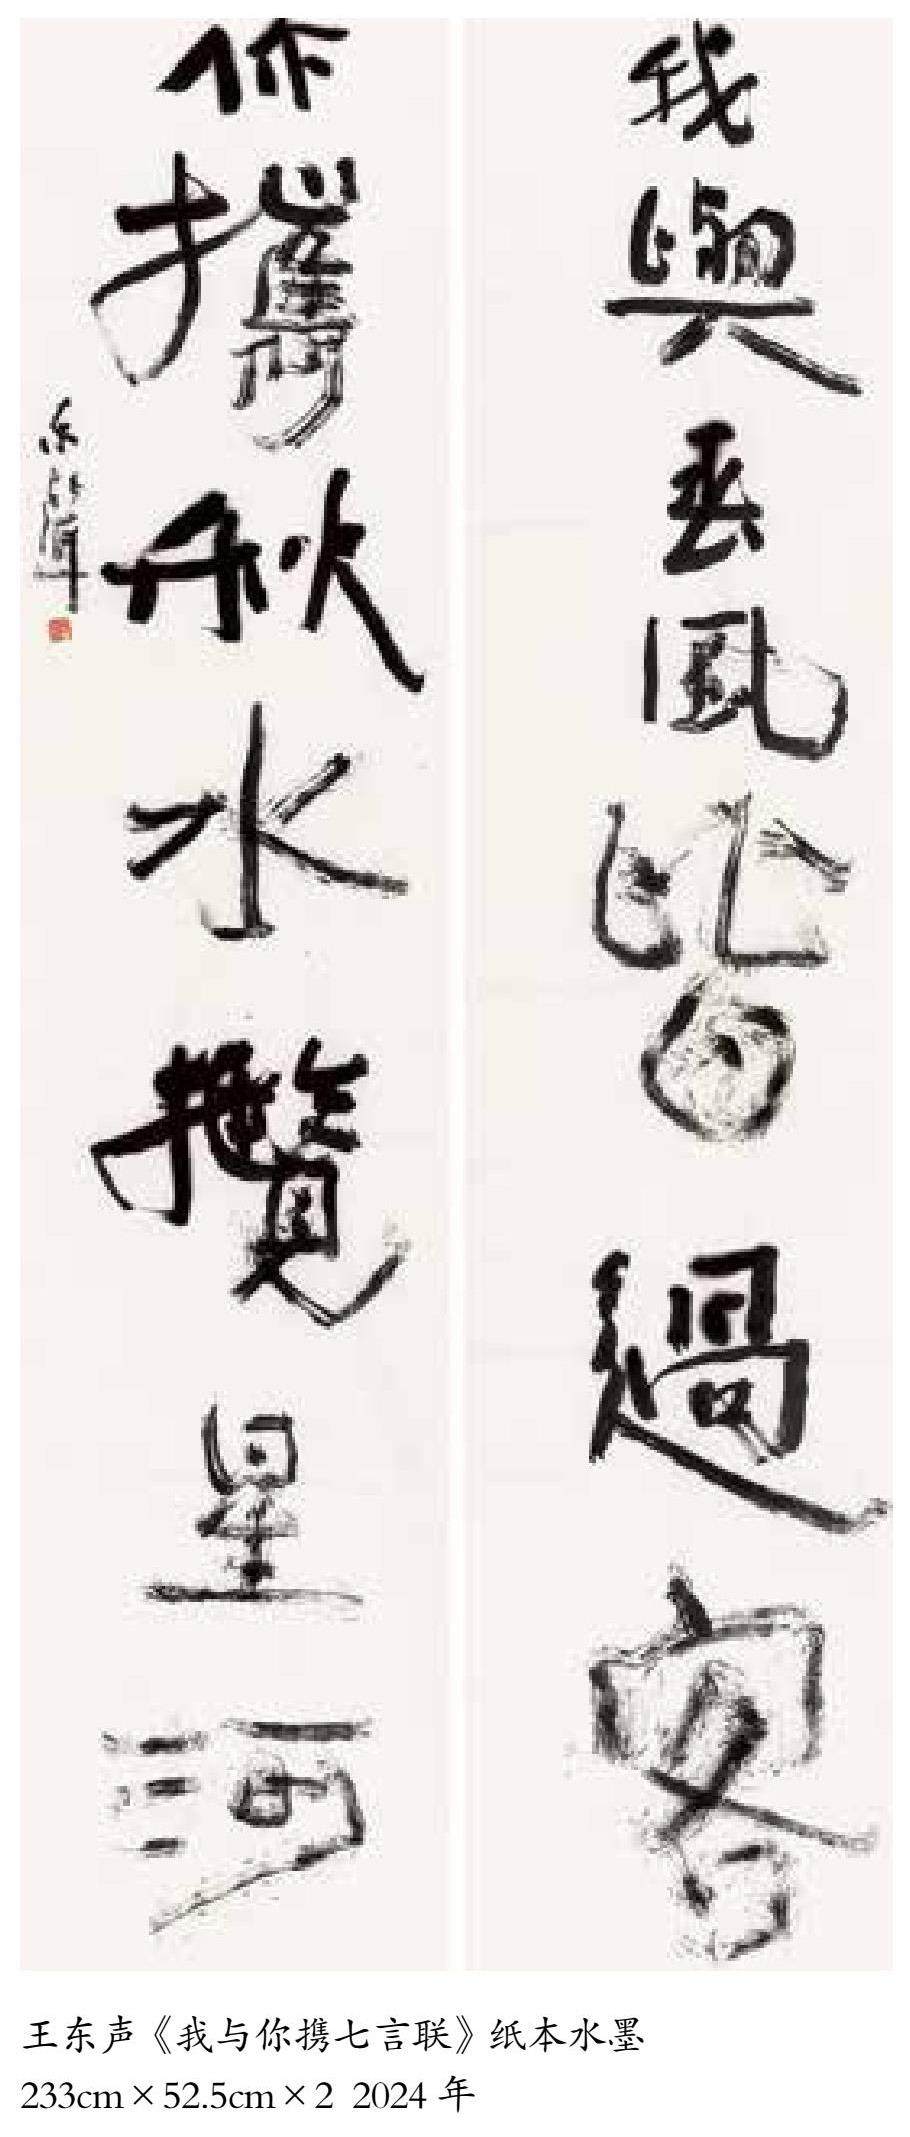 我與春風皆過客
你攜秋水攬星河
王东声《我与你携七言联》纸本水墨
233cm×52.5cm×2 2024 年